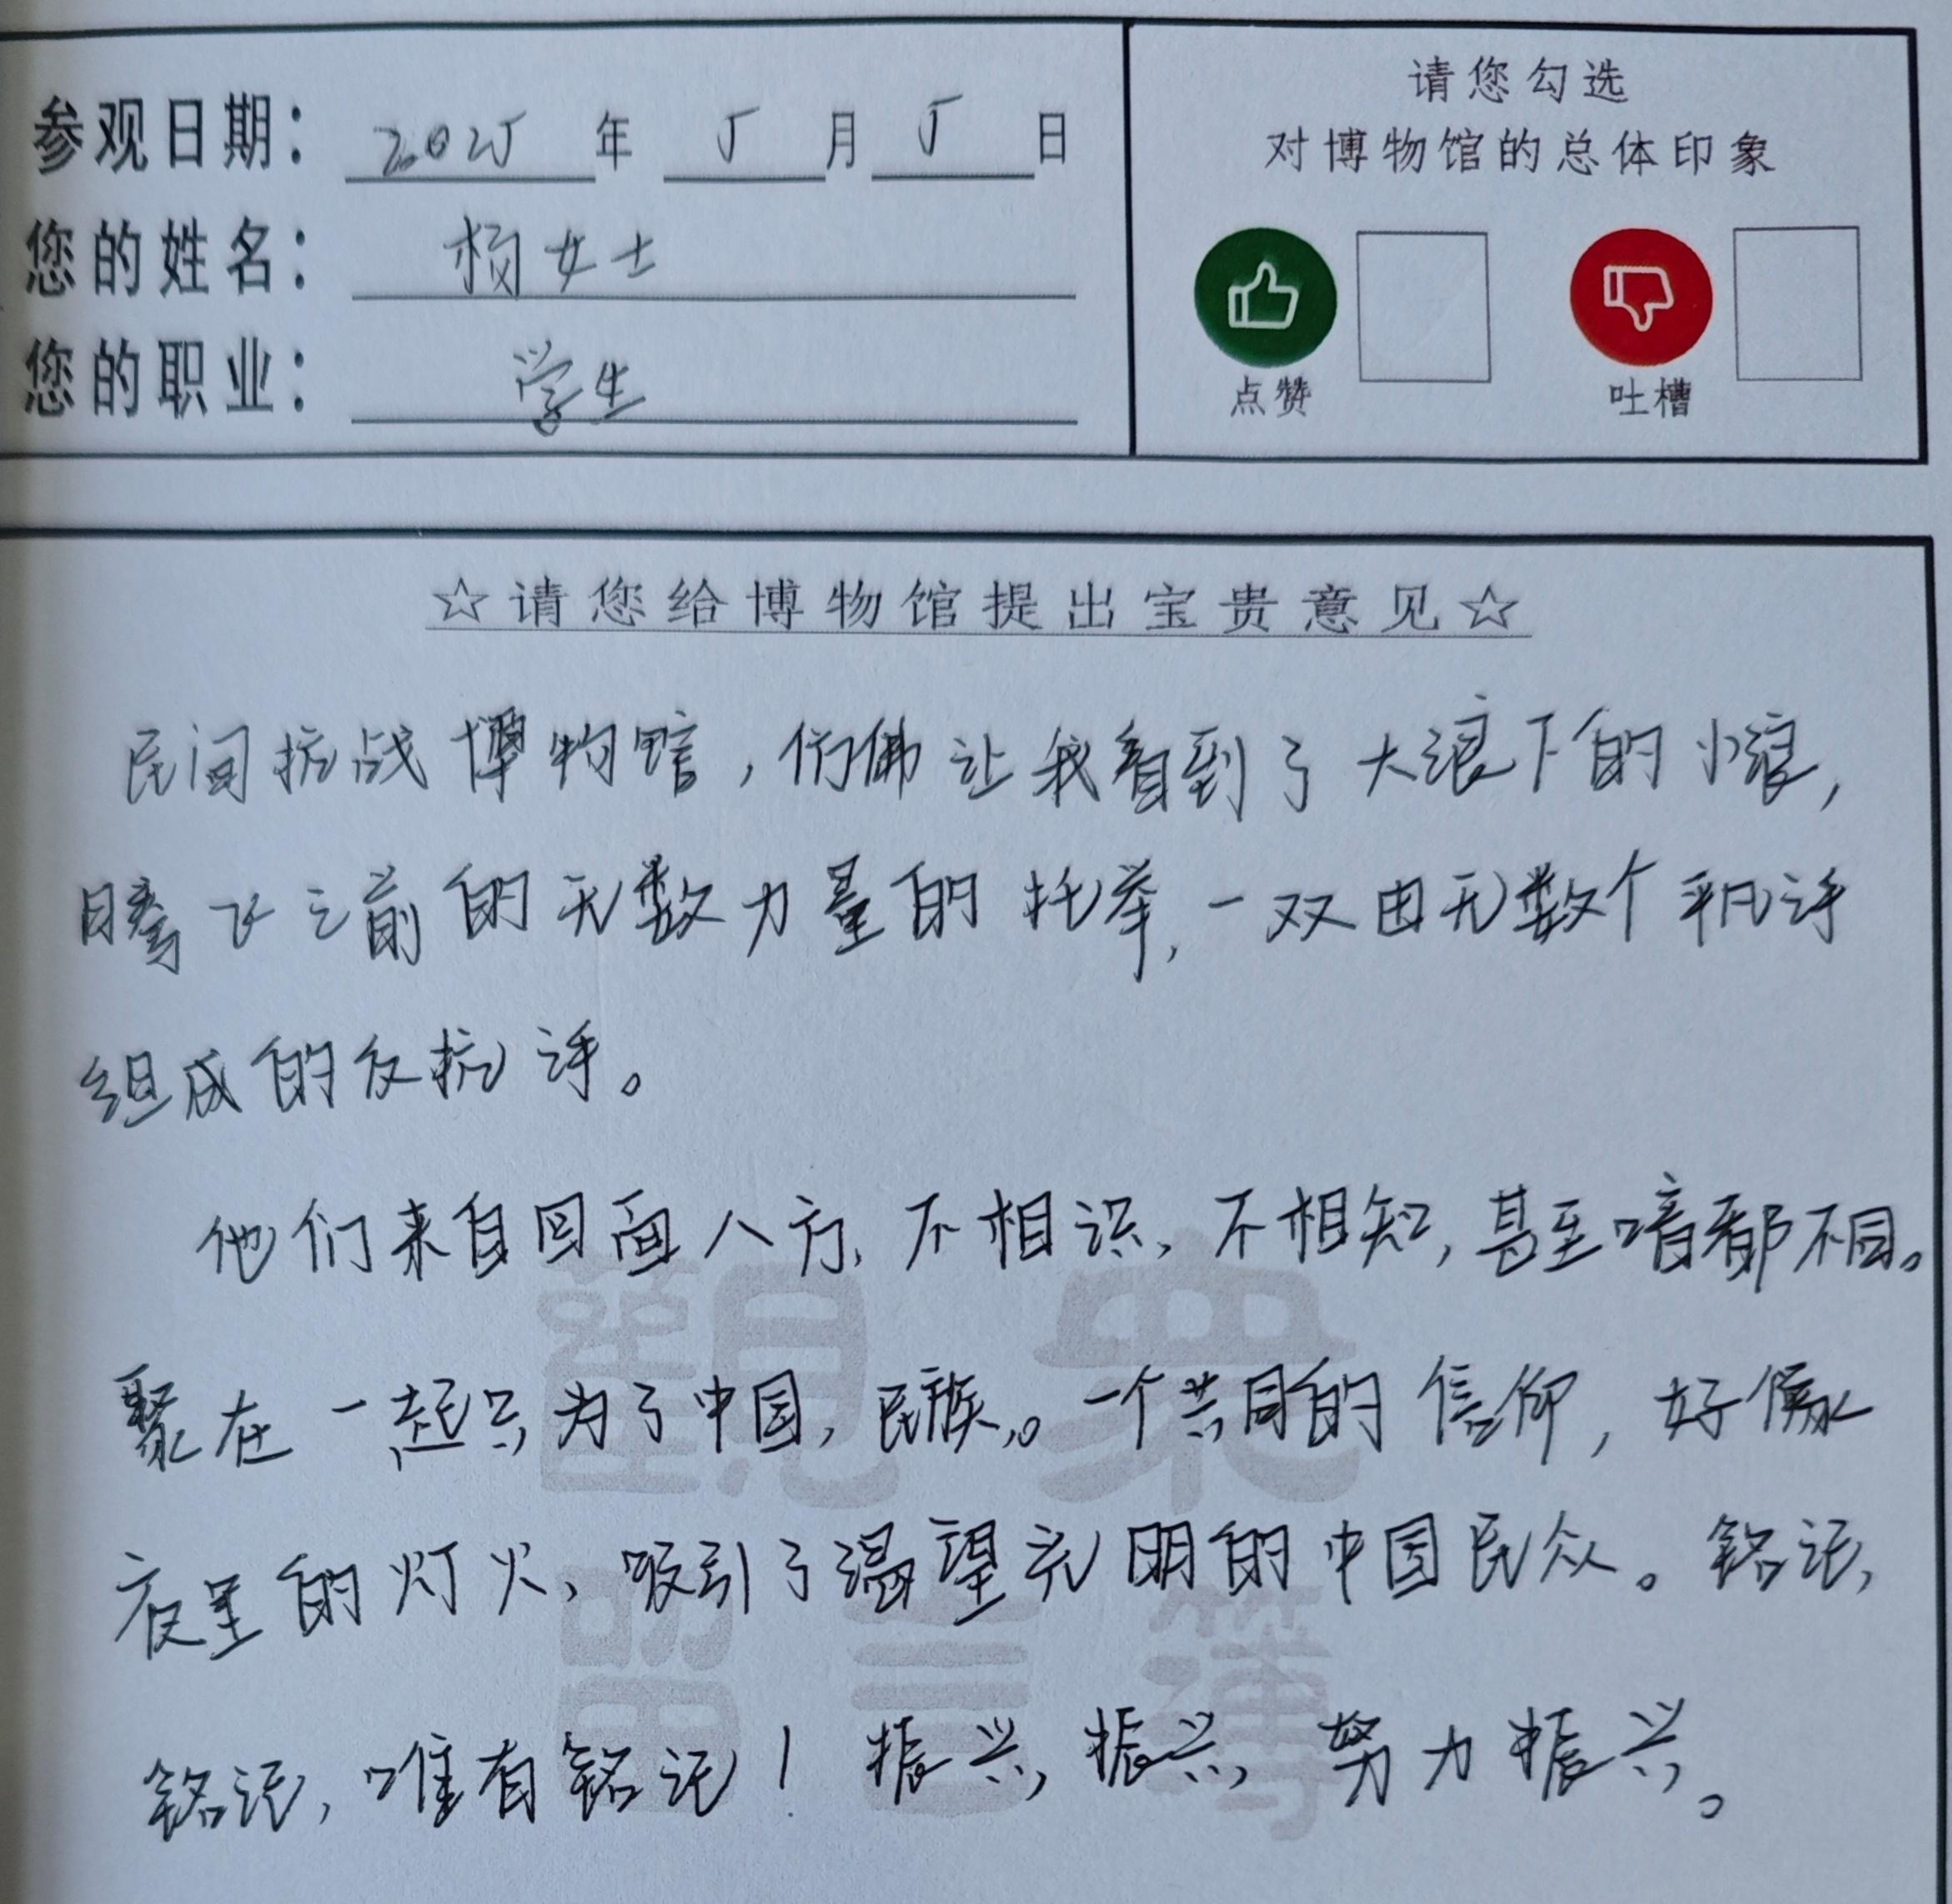 参观日期：2025年5月5日
您的姓名：杨女士
您的职业：学生
请您勾选
对博物馆的总体印象
点赞 吐槽
☆请您给博物馆提出宝贵意见☆
民间抗战博物馆，仿佛让我看到了大浪下的小浪，
腾飞之前的无数力量的托举，一双由无数个平凡手
组成的反抗手。
他们来自四面八方，不相识、不相知，甚至音都不同。
聚在一起只为了中国，民族。一个共同的信仰，好像
夜里的灯火，吸引了渴望光明的中国民众。铭记，
铭记，唯有铭记！振兴，振兴，努力振兴。
觀衆
留言簿